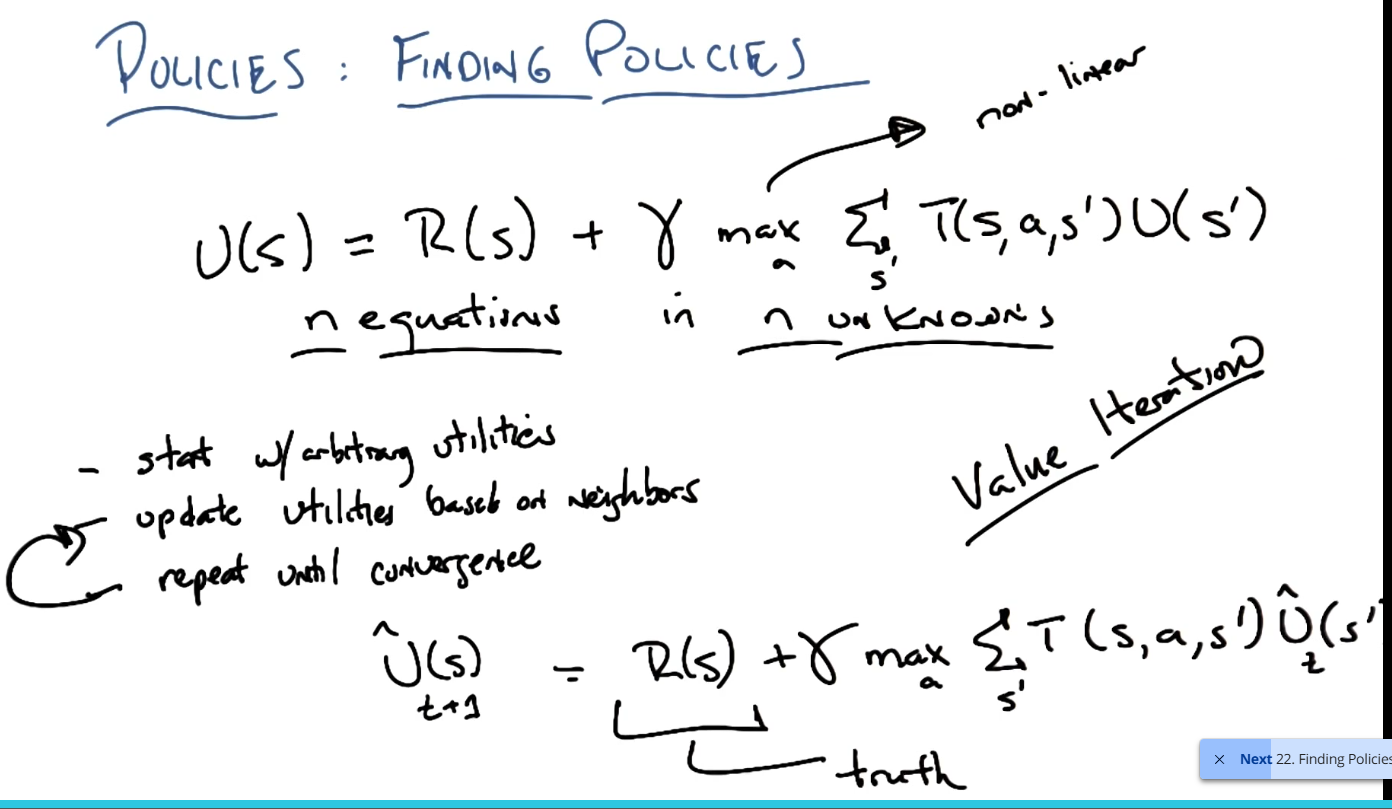 POLICIES : FINDING POLICIES
non-linear
U(s) = R(s) + γ max_a Σ_s' T(s,a,s') U(s')
n equations in n unknowns
Value Iteration
- start w/ arbitrary utilities
- update utilities based on neighbors
- repeat until convergence
Û_t+1(s) = R(s) + γ max_a Σ_s' T(s,a,s') Û_t(s'
truth
× Next 22. Finding Policies